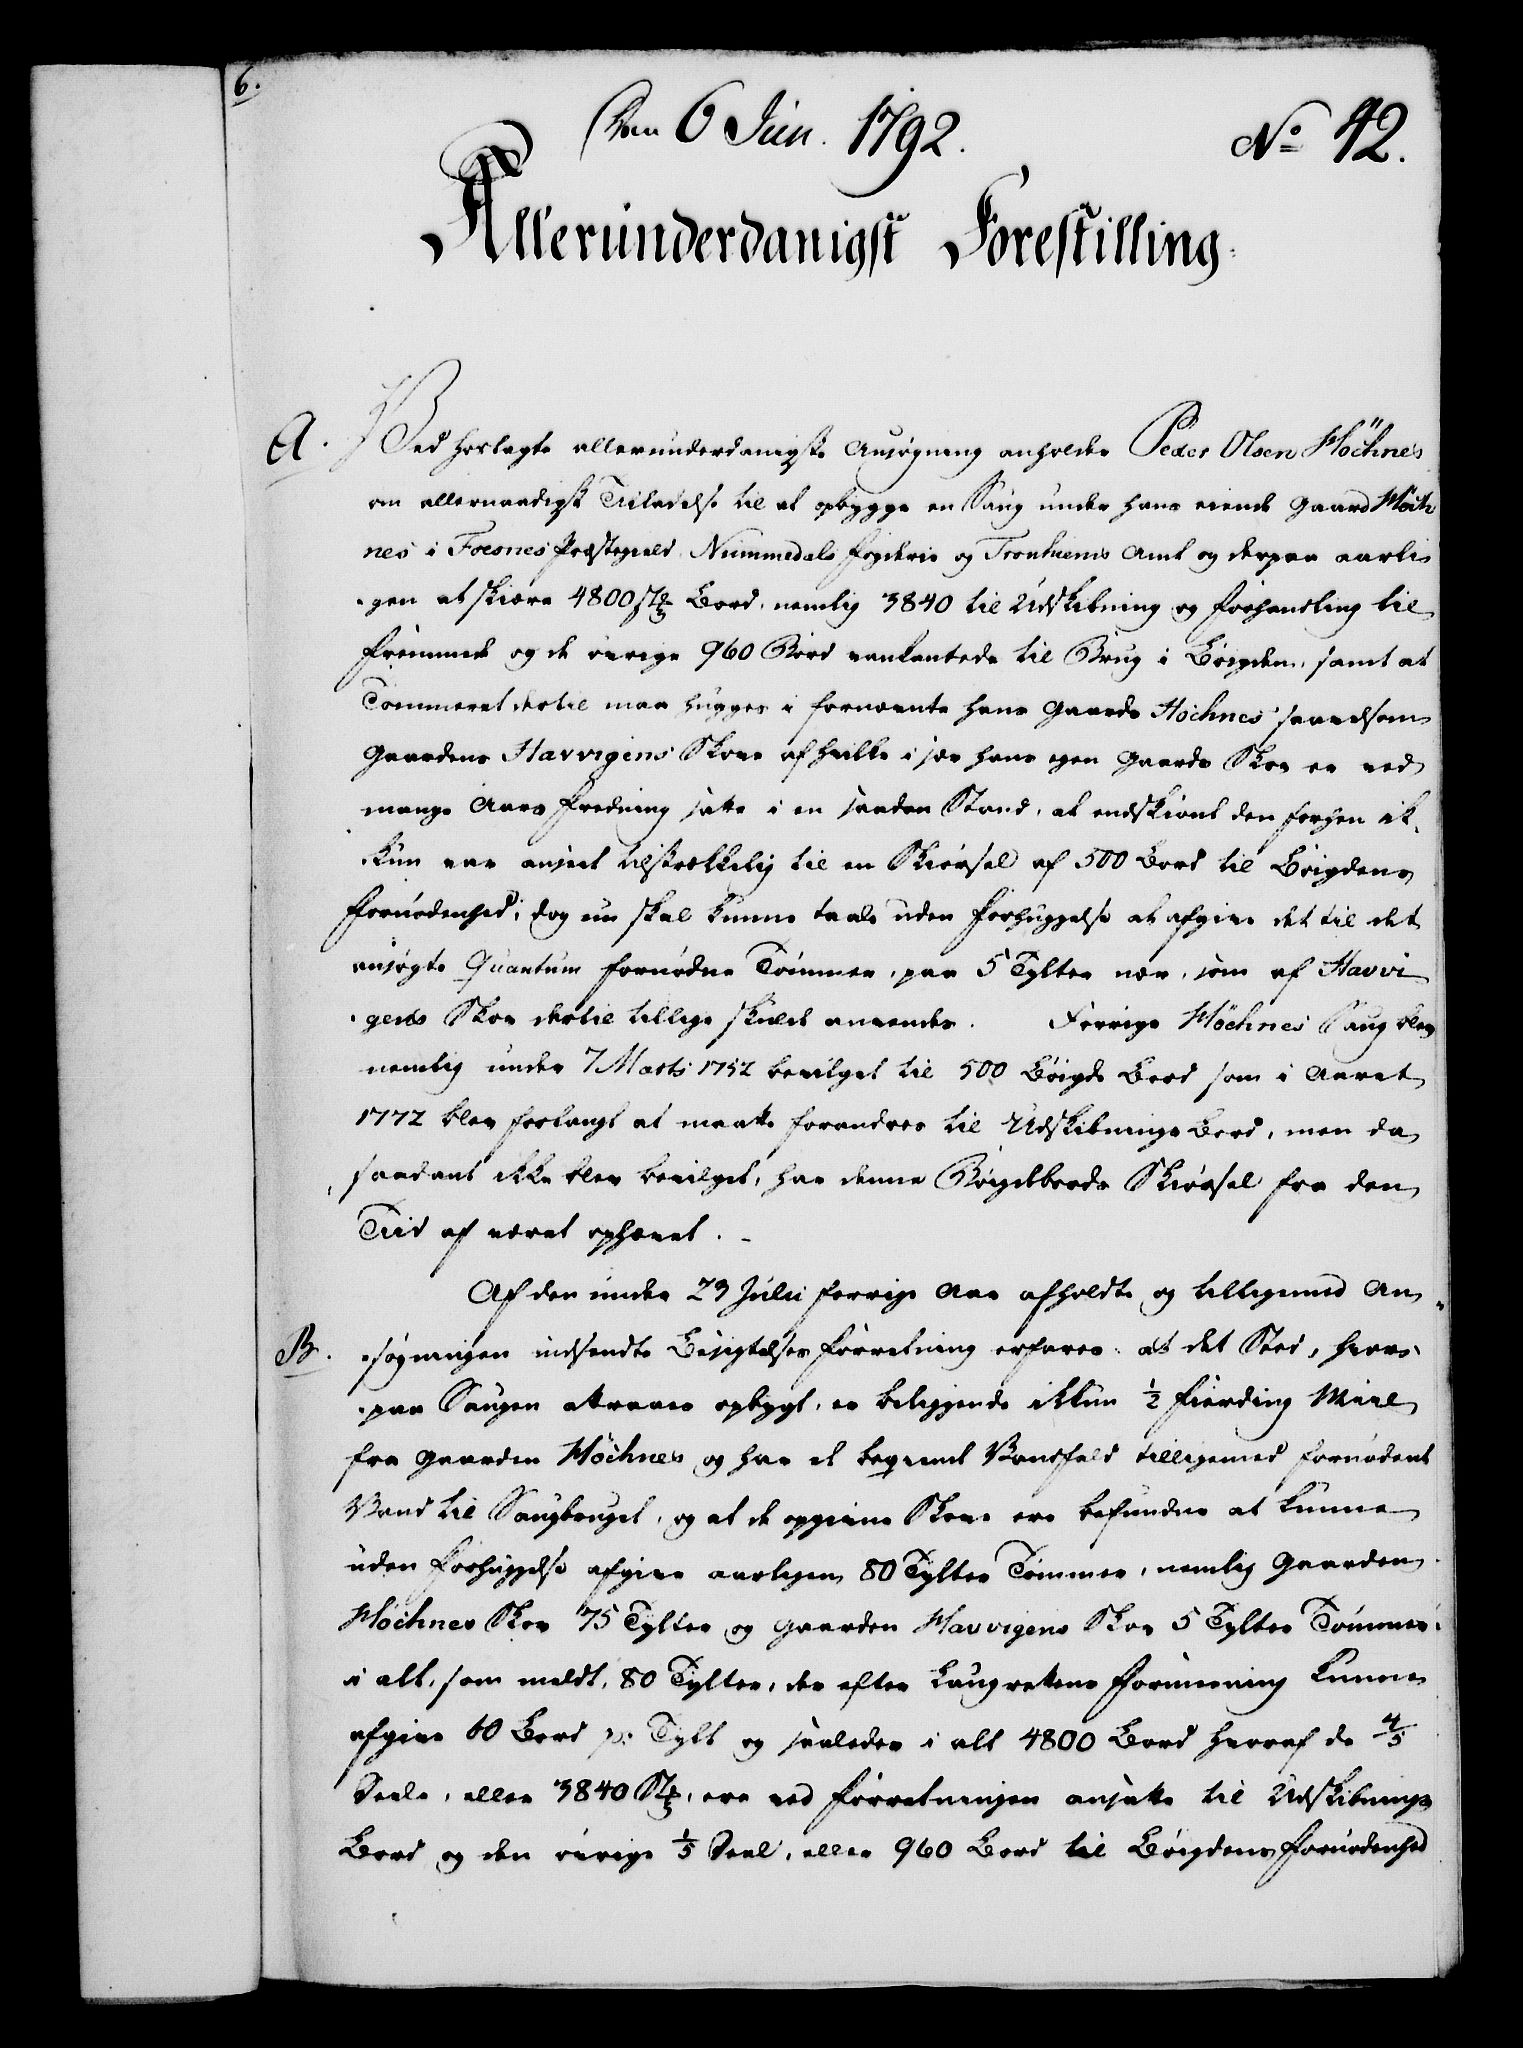 6.
Den 6 Jun. 1792.
No 42.
Allerunderdanigst Forestilling.
A. Ved hoslagte allerunderdanigste Ansøgning anholder Peder Olsen Höchnes
om allernaadigst Tilladelse til at opbygge en Saug under hans eiende Gaard Höch
nes i Foesnes Præstegield Nummedals Fogderie og Tronhiems Amt og derpaa aarli
gen at skiære 4800 Stk Bord, nemlig 3840 til Udskibning og Forhandling til
Fremmede og de øvrige 960 Bord vankantede til Brug i Bøigden, samt at
Tømmeret dertil maa hugges i fornævnte hans Gaards Höchnes saavelsom
Gaardens Havvigens Skove af hvilke i sær hans egen Gaards Skov er ved
mange Aars Fredning satte i en saadan Stand, at endskiønt den forhen ik
kun var anseet tilstrækkelig til en Skiørsel af 500 Bord til Bøigdens
Fornødenhed, dog nu skal kunne taale uden Forhuggelse at afgive det til det
ansøgte Quantum fornødne Tømmer, paa 5 Tylter nær, som af Havvi
gens Skov dertil tillige skulde anvendes. Forrige Höchnes Saug blev
nemlig under 7 Marts 1752 bevilget til 500 Bøigde Bord som i Aaret
1772 blev forlangt at maatte forandres til Udskibnings Bord, men da
saadant ikke blev bevilget, har denne Bøigdebords Skiørsel fra den
Tiid af været ophævet.
Af den under 23 Julii forrige Aar afholdte og tilligemed An
B. søgningen indsendte Besigtelses Forretning erfares at det Sted, hvor
paa Saugen attraaes opbygt, er beliggende ikkun 1/2 Fierding Miil
fra Gaarden Höchnes og har et beqvemt Vandfald tilligemed fornødent
Vand til Saugbruget, og at de opgivne Skove ere befundne at kunne
uden Forhuggelse afgive aarligen 80 Tylter Tømmer, nemlig Gaarden
Höchnes Skov 75 Tylter og Gaarden Havvigens Skov 5 Tylter Tømmer
i alt, som meldt, 80 Tylter, der efter Laugrettens Formeening kunne
afgive 60 Bord pr Tylt og saaledes i alt 4800 Bord hvoraf de 4/5
Deele, eller 3840 Stk, ere ved Forretningen ansatte til Udskibnings
Bord og den øvrige 1/5 Deel, eller 960 Bord til Bøigdens Fornødenhed